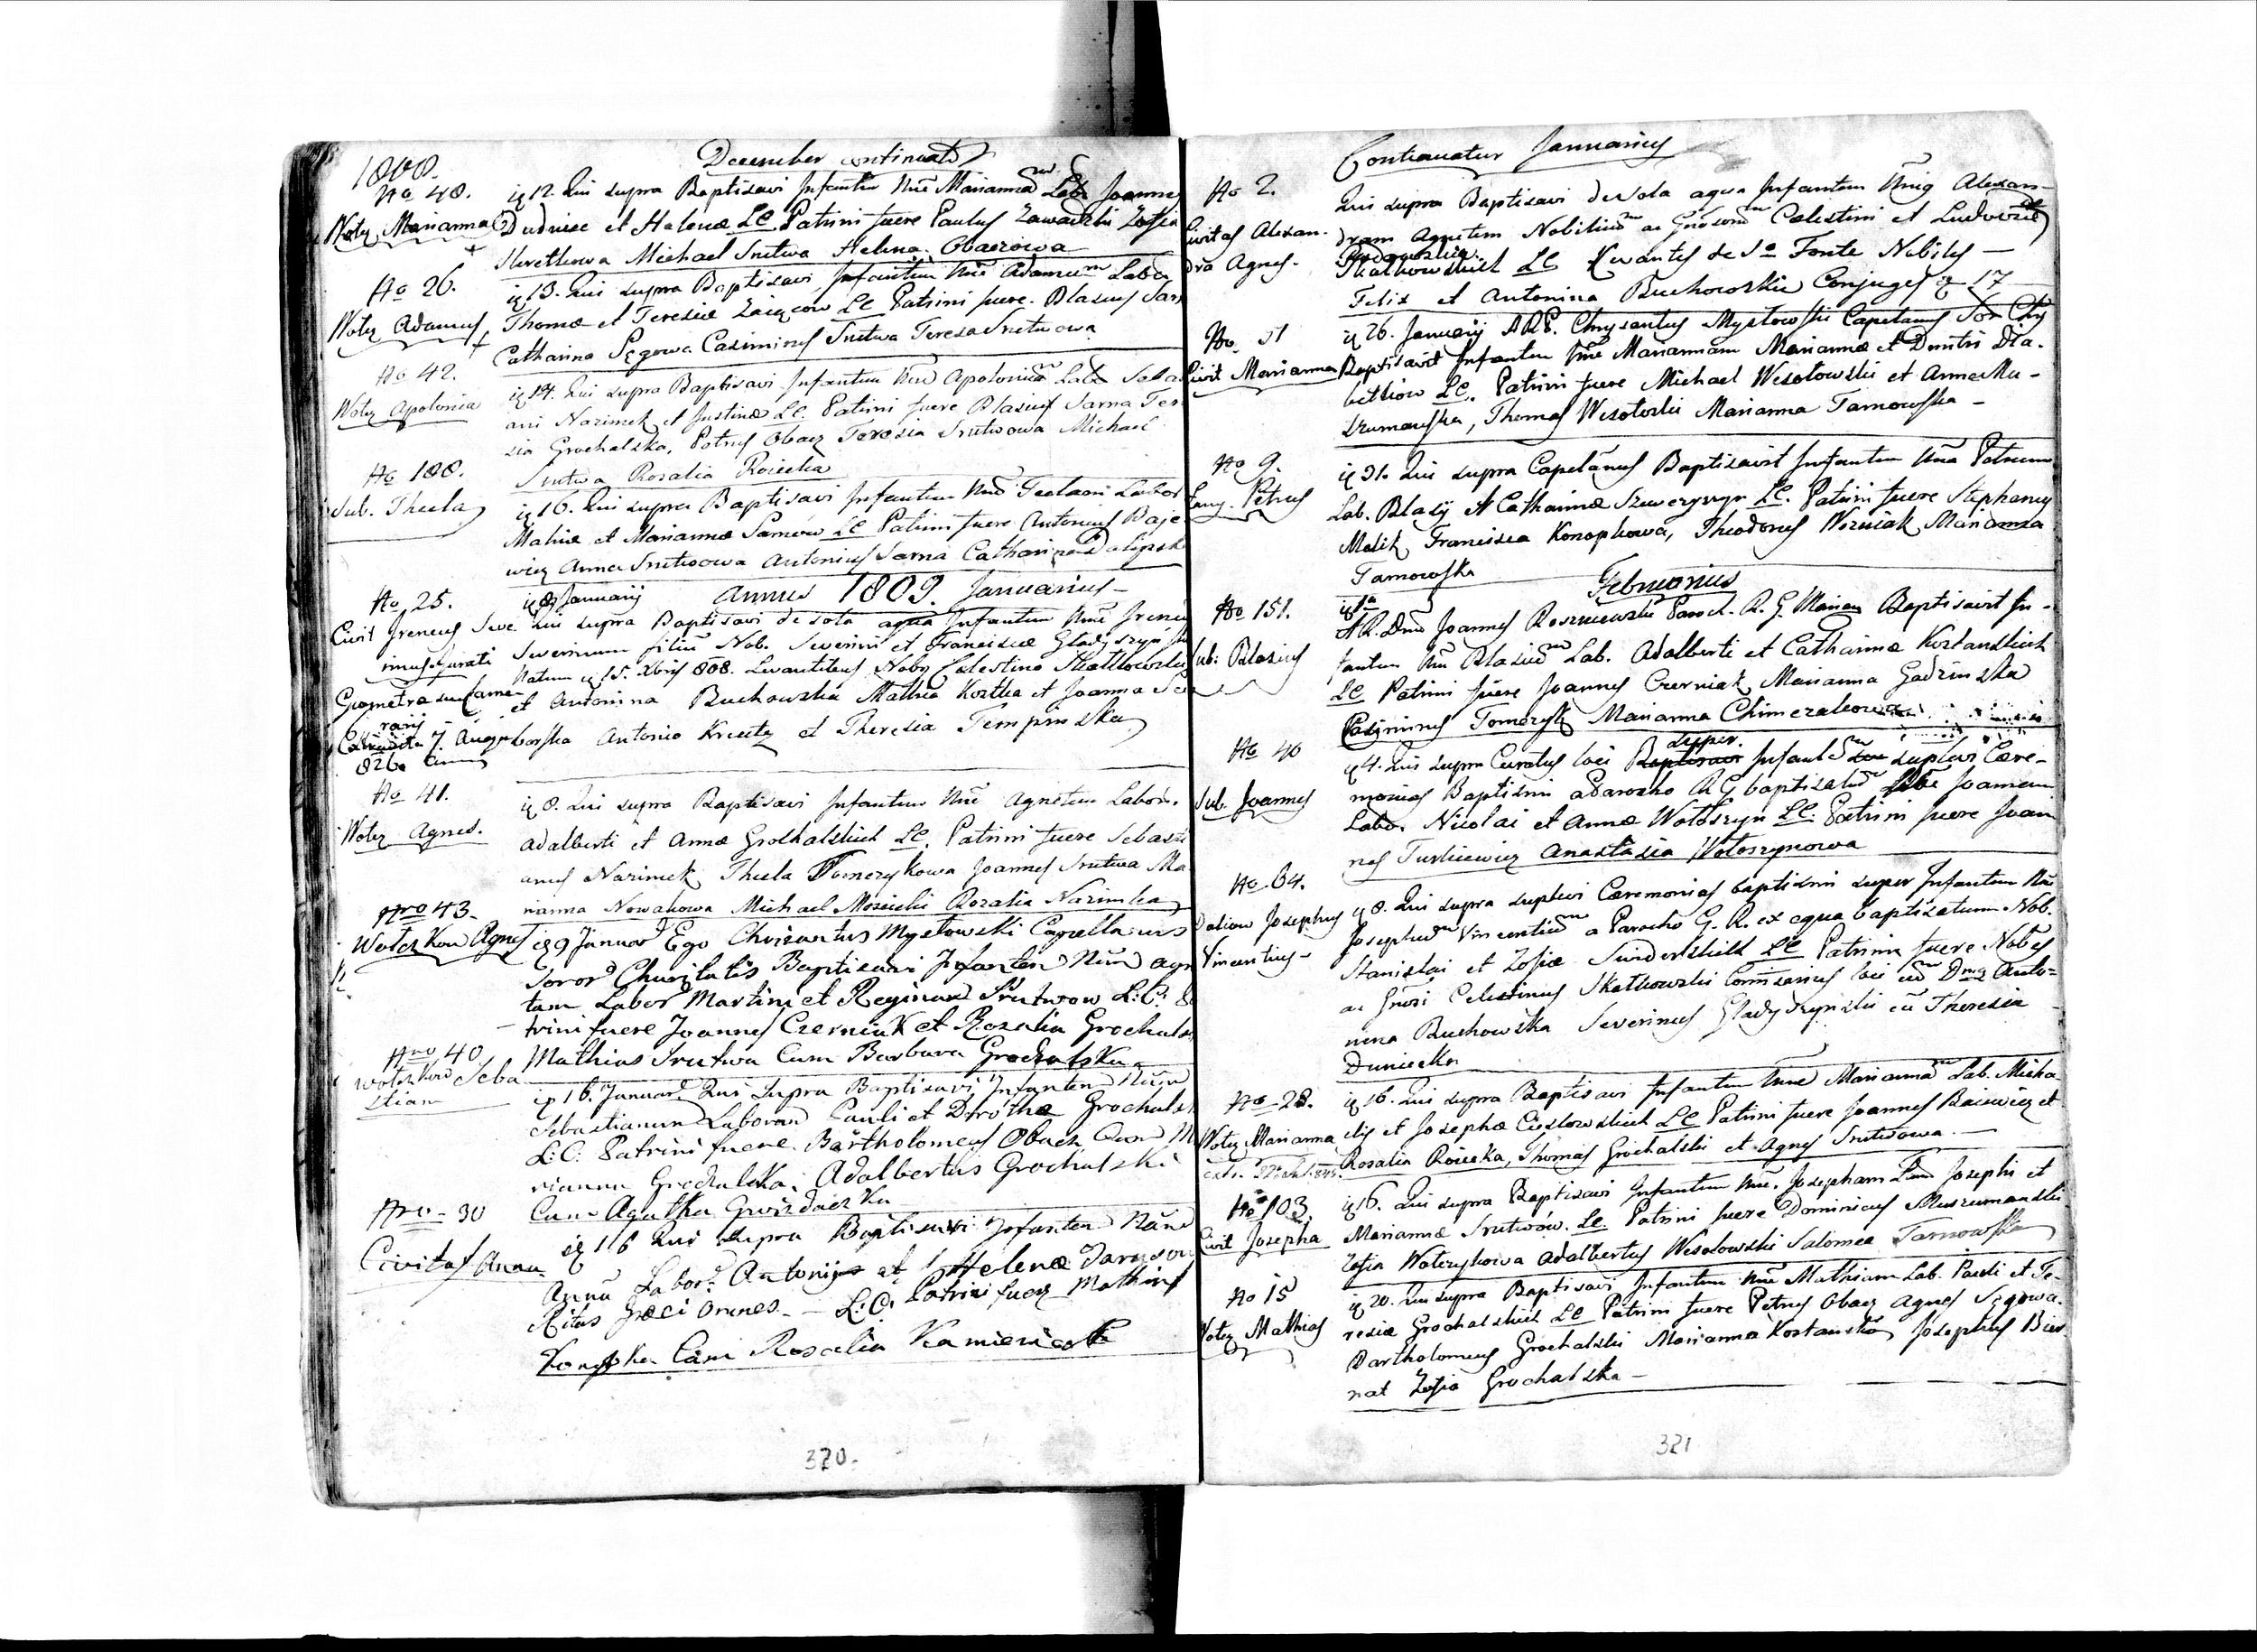 1808.
December continuatur
No 48.
Wolcz Marianna
ią 12. Qui supra Baptisavi Infantem Nne Mariannam Lab. Joannis
Dudnice et Helenæ LC. Patrini fuere Paulus Zawadzki Zofia
Michael Srutwa Helena Obaczowa
No 26.
Wolcz Adamus
ią 13. Qui supra Baptisavi, Infantem Nne Adamum Labor
Thomæ et Teresiæ Zaięcow LC Patrini fuere Blasius Sar
Catharina Sęgowa Casimirus Srutwa Teresa Srutwowa
No 42.
Wolcz Apolonia
ią 14. Qui supra Baptisavi Infantem Nne Apoloniam Lab. Seba
ani Nazimek et Justinæ LC. Patrini fuere Blasius Sarna Ter
sia Grochalska, Petrus Obacz Teresia Srutwowa Michael
Srutwa Rosalia Rosicka
No 188.
Sub. Thecla
ią 16. Qui supra Baptisavi Infantem Nne Teclam Labor
et Mariannæ Sarnów LC Patrini fuere Antonius Baje
wicz Anna Srutwowa Antonius Sarna Catharina
Annus 1809. Januarius
No 25.
Civit Ireneus Seve
ią 8 Januarij
Qui supra Baptisavi de sola aqua Infantem Nne Ireneu
Severinum filiu Nob. Severini et Franciscæ Gladyszyń
Natum ią 15. Xbris 808. Levantibus Nobis Celestino Skałkowski
et Antonina Buchowska Mathia Kostka et Joanna
borska Antonio Kreutz et Theresia Tempinska
No 41.
Wolcz Agnes.
ią 8. Qui supra Baptisavi Infantem Nne Agnetem Labor.
Adalberti et Annæ Grochalskich LC. Patrini fuere Sebasti
anus Nazimek Thecla Tomczykowa Joannes Srutwa Ma
rianna Nowakowa Michael Mosicki Rozalia Nazimka
Nro 43.
Wolcz Kow Agnes
ią 9 Januar Ego Chrisantus Mysłowski Capellanus
Soror Charitatis Baptisavi Infantem Num Agn
tam Labor Martini et Reginæ Srutwow L:C:
trini fuere Joannes Czerniak et Rozalia Grochals
Mathias Srutwa Cum Barbara Grochalska
Nro 40
Wolcz Kow Seba
stian
ią 16. Januar. Qui Supra Baptisavi Infantem Num
Sebastianum Laborum Pauli et Dorothæ Grochals
L:C: Patrini fuere. Bartholomeus Obacz Cum M
rianna Grochalska; Adalbertus Grochalski
Cum Agatha Gwizdaczka
Nro 30
Civitas Anna
ią 16 Qui supra Baptisavi Infantem Num
Annu Labor. Antonij et Helenæ
Ritus Græci Omnes. L:C: Patrini fuere Mathias
Konopka Cum Rosalia Kamieniarka
320.
Continuatur Januarius
No 2.
Civitas Alexan-
dra Agnes.
Qui supra Baptisavi de sola aqua Infantem Alexan-
dram Agnetem Nobilium ac Gnosorum Cælestini et Ludovicæ
Skałkowskich LC Levantes de So Fonte Nobiles
Felix et Antonina Buchowskie Conjuges
No. 51
Civit Marianna
ią 26. Januarij ARP. Chrysantus Mysłowski Capelanus Sor Chy
Baptisavit Infantem Nne Mariannam Mariannæ et Dmitri Dia-
bełkow LC. Patrini fuere Michael Wesołowski et Anna Mu-
szumańska, Thomas Wesołoski Marianna Tarnowska
No 9.
Petrus
ią 31. Qui supra Capelanus Baptisavit Infantem Nne Petrum
Lab. Blasij et Catharinæ Szweryn LC. Patrini fuere Stephanus
Malik Francisca Konopkowa, Theodorus Wozniak Marianna
Tarnowska
Februarius
No 151.
Sub: Blasius
ią 1a
AR. Dnus Joannes Roszniowski Paroch. R. G. Baptisavit In-
fantem Nne Blasium Lab. Adalberti et Catharinæ Kostanskich
LC Patrini fuere Joannes Czerniak Marianna Gadzinska
Casimirus Tomczyk Marianna Chimczakowa
No 40
Sub. Joannes
ią 4. Qui supra Curatus loci super Infantem suplevi Cære-
monias Baptismi a Parocho R G baptisatum Joannem
Labo. Nicolai et Annæ Wołoszyn LC. Patrini fuere Joan
nes Turkiewicz Anastasia Wołoszynowa
No 64.
Josephus
Vincentius
ią 8. Qui supra suplevi Cæremonias baptismi super Infantem Nne
Josephum Vincentium a Parocho G. R. ex aqua baptisatum Nob.
Stanislai et Zofiæ Swiderskich LC Patrini fuere Nobiles
ac Gnosi Celestinus Skałkowski Comisarius loci cum Dna Anto=
nina Buchowska Severinus Gladyszynski cu Theresia
Duniecka
No 28.
Wolcz Marianna
ią 16. Qui supra Baptisavi Infantem Nne Mariannam Lab. Micha
elis et Josephæ Cisłowskich LC Patrini fuere Joannes Baiewicz et
Rosalia Rosicka, Thomas Grochalski et Agnes Srutwowa.
No 103.
Civit Josepha
ią 16. Qui supra Baptisavi Infantem Nne. Josepham Lab Josephi et
Mariannæ Srutwów. LC Patrini fuere Dominicus Muszumanski
Zofia Wolczykowa Adalbertus Wesołowski Salomea Tarnowska
No 15
Wolcz Mathias
ią 20. Qui supra Baptisavi Infantem Nne Mathiam Lab. Pauli et Te-
resiæ Grochalskich LC Patrini fuere Petrus Obacz Agnes Sęgowa.
Bartholomeus Grochalski Marianna Kostanska Josephus Bier
nat Zofia Grochalska
321